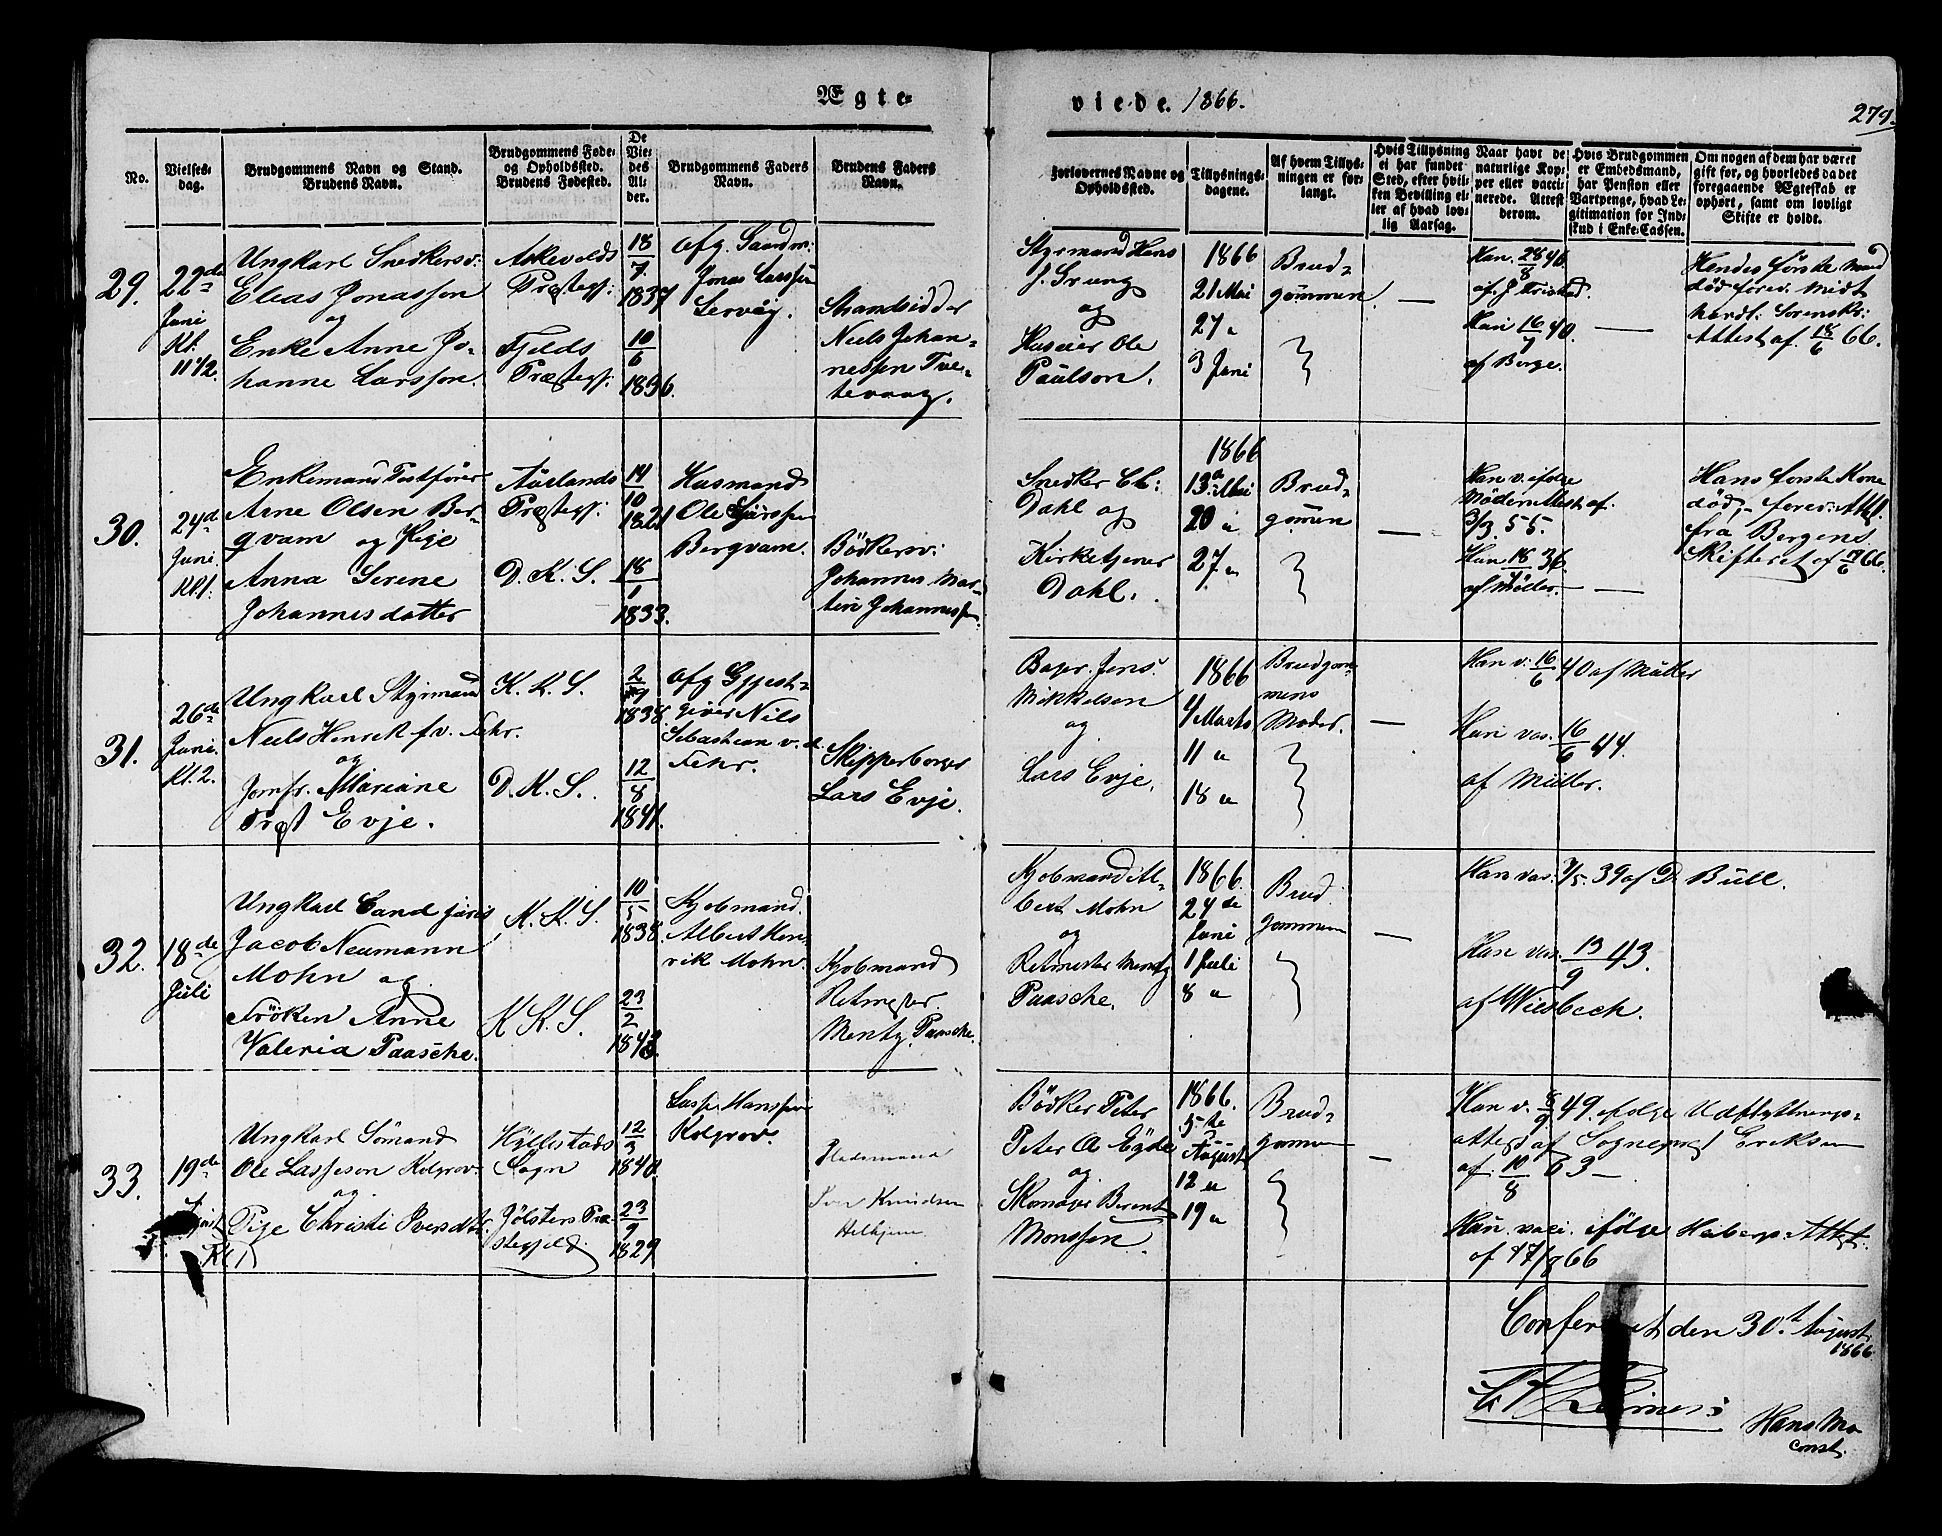 Ægte-
viede. 1866.
279.
No.
Vielses-
dag.
Brudgommens Navn og Stand.
Brudens Navn.
Brudgommens Føde-
og Opholdssted.
Brudens Fødested.
De
Vie-
des
Al-
der.
Brudgommens Faders
Navn.
Brudens Faders
Navn.
Forlovernes Navne og
Opholdssted.
Tillysnings-
dagene.
Af hvem Tillys-
ningen er for-
langt.
Hvis Tillysning
ei har fundet
Sted, efter hvil-
ken Bevilling el-
ler af hvad lov-
lig Aarsag.
Naar havt de
naturlige Kop-
per eller vacci-
nerede. Attest
derom.
Hvis Brudgommen
er Embedsmand,
har Pension eller
Vartpenge, hvad Le-
gitimation for Ind-
skud i Enke-Cassen.
Om nogen af dem har været
gift før, og hvorledes da det
foregaaende Ægteskab er
ophørt, samt om lovligt
Skifte er holdt.
29.
22de
Juni
Kl.
11 1/2.
Ungkarl Snedkersv:
Elias Jonassen
og
Enke Anne Jo-
hanne Larssen.
Askevolds
Præstegj:
Fjelds
Præstegj:
18/7 1837
10/6 1836.
Afg. Saardm:
Jonas Larssen
Servøg.
Strandsidder
Niels Johan-
nessen Tve-
tevaag.
Styrmand Hans
J. Grung
og
Huseier Ole
Paulson.
1866
21 Mai
27 "
3 Juni
Brud-
gommen.
—
Han. 28/8 40.
af J. Friestad.
Hun 16/7 40.
af Borge.
—
Hendes første Mand
død forev. Midt
hardl: Sorensk:
Attest af. 18/6 66.
30.
24de
Juni.
Kl 1.
Enkemand Postfører
Arne Olsen Ber-
gvam og Pige
Anna Serene
Johannesdatter
Aurlands
Præstegj:
D. K. S.
14/10 1821
18/1 1833.
Husmand
Ole
Bergvam.
Bödkersv:
Johannes Mar-
tin Johannessen.
Snedker Ch:
Dahl og
Kirketjener
Dahl.
1866
13de Mai
20 "
27. "
Brud-
gommen
—
Han v. ifölge
Attest af.
3/3. 55.
Hun 18/4 36
af Möller.
—
Hans förste Kone
död, forev: Att.
fra Bergens
Skifteret af 66.
31.
26de
Juni.
Kl. 2.
Ungkarl Styrmand
Niels Henrik f.v. Fehr.
og
Jomfr. Mariane
Præst Evje.
K. K. S.
D. K. S.
2/9 1838.
12/8 1841.
Afg Gjest-
giver Nils
Sebastian v. d.
Fehr.
Skipperborger
Lars Evje.
Bager. Jens
Mikkelsen
og
Lars Evje.
1866
4 Marts
11 "
18 "
Brudgom-
mens
Moder.
—
Han v. 16/6 40 af Müller
Hun vac. 16/6 44.
af Müller.
32.
18de
Juli
Ungkarl Cand juris
Jacob Neumann
Mohn og
Fröken Anne
Valeria Paasche.
K. K. S.
K K. S.
10/5 1838.
23/2 1843.
Kjobmand.
Albert Hen-
rik Mohn.
Kjobmand
Retmester
Mentz. Paasche.
Kjobmand Al-
bert Mohn
og
Retmester Mentz
Paasche.
1866
24de
Juni
1 Juli
8 "
Brud-
gommen
—
Han vac. 39 af D. Bull.
Hun vac. 13/9 43.
af Wiesbech.
33.
19de
August
Kl
Ungkarl Sömand
Ole Lasseson Kolgrov.
og
Pige Christi Iversdtr.
Hyllestads
Sogn
Jölsters Præ-
stegjeld.
12/3 1840.
23/9 1829.
Lasse Hanssen
Kolgrov.
Pladsmand
Iver Knudsen
Helkjem.
Bödker Peter
Peter A. Egde
og
Skomager Berent
Monssen.
1866.
5te
August
12 "
19 "
Brud-
gommen
—
Han v. 8/9 49. ifölge Udflytnings-
attest af Sognepræst Eriksen
af. 10/8 63 —
Hun. vacci. ifölge Attest.
af 17/8 66
Conferert den 30te August
1866.
Hans Mo
const.